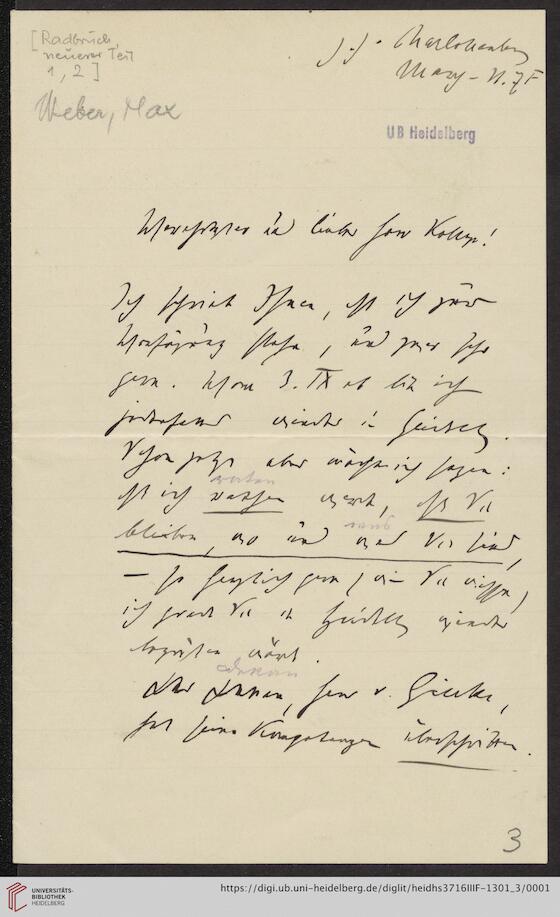 [Radbruch
neuerer Teil
1, 2]
Weber, Max
z. Z. Charlottenburg
UB Heidelberg
lieber Herr College!
Ich schrieb Ihnen, ich zur
Verfügung stehe, und zwar sehr
gern. Vom 3. IX ab bin ich
wieder in Heidelbg.
Schon jetzt aber möchte ich sagen:
raten
ich rathen würde, Sie
bleiben, wo und was Sie sind,
– so herzlich gern (wie Sie wissen)
ich grade Sie in Heidelbg wieder
begrüßen würde.
Dekan
Der Dekan, Herr v. Gierke,
hat seine Kompetenzen überschritten.
3
UNIVERSITÄTS-
BIBLIOTHEK
HEIDELBERG
https://digi.ub.uni-heidelberg.de/diglit/heidhs3716IIIF-1301_3/0001